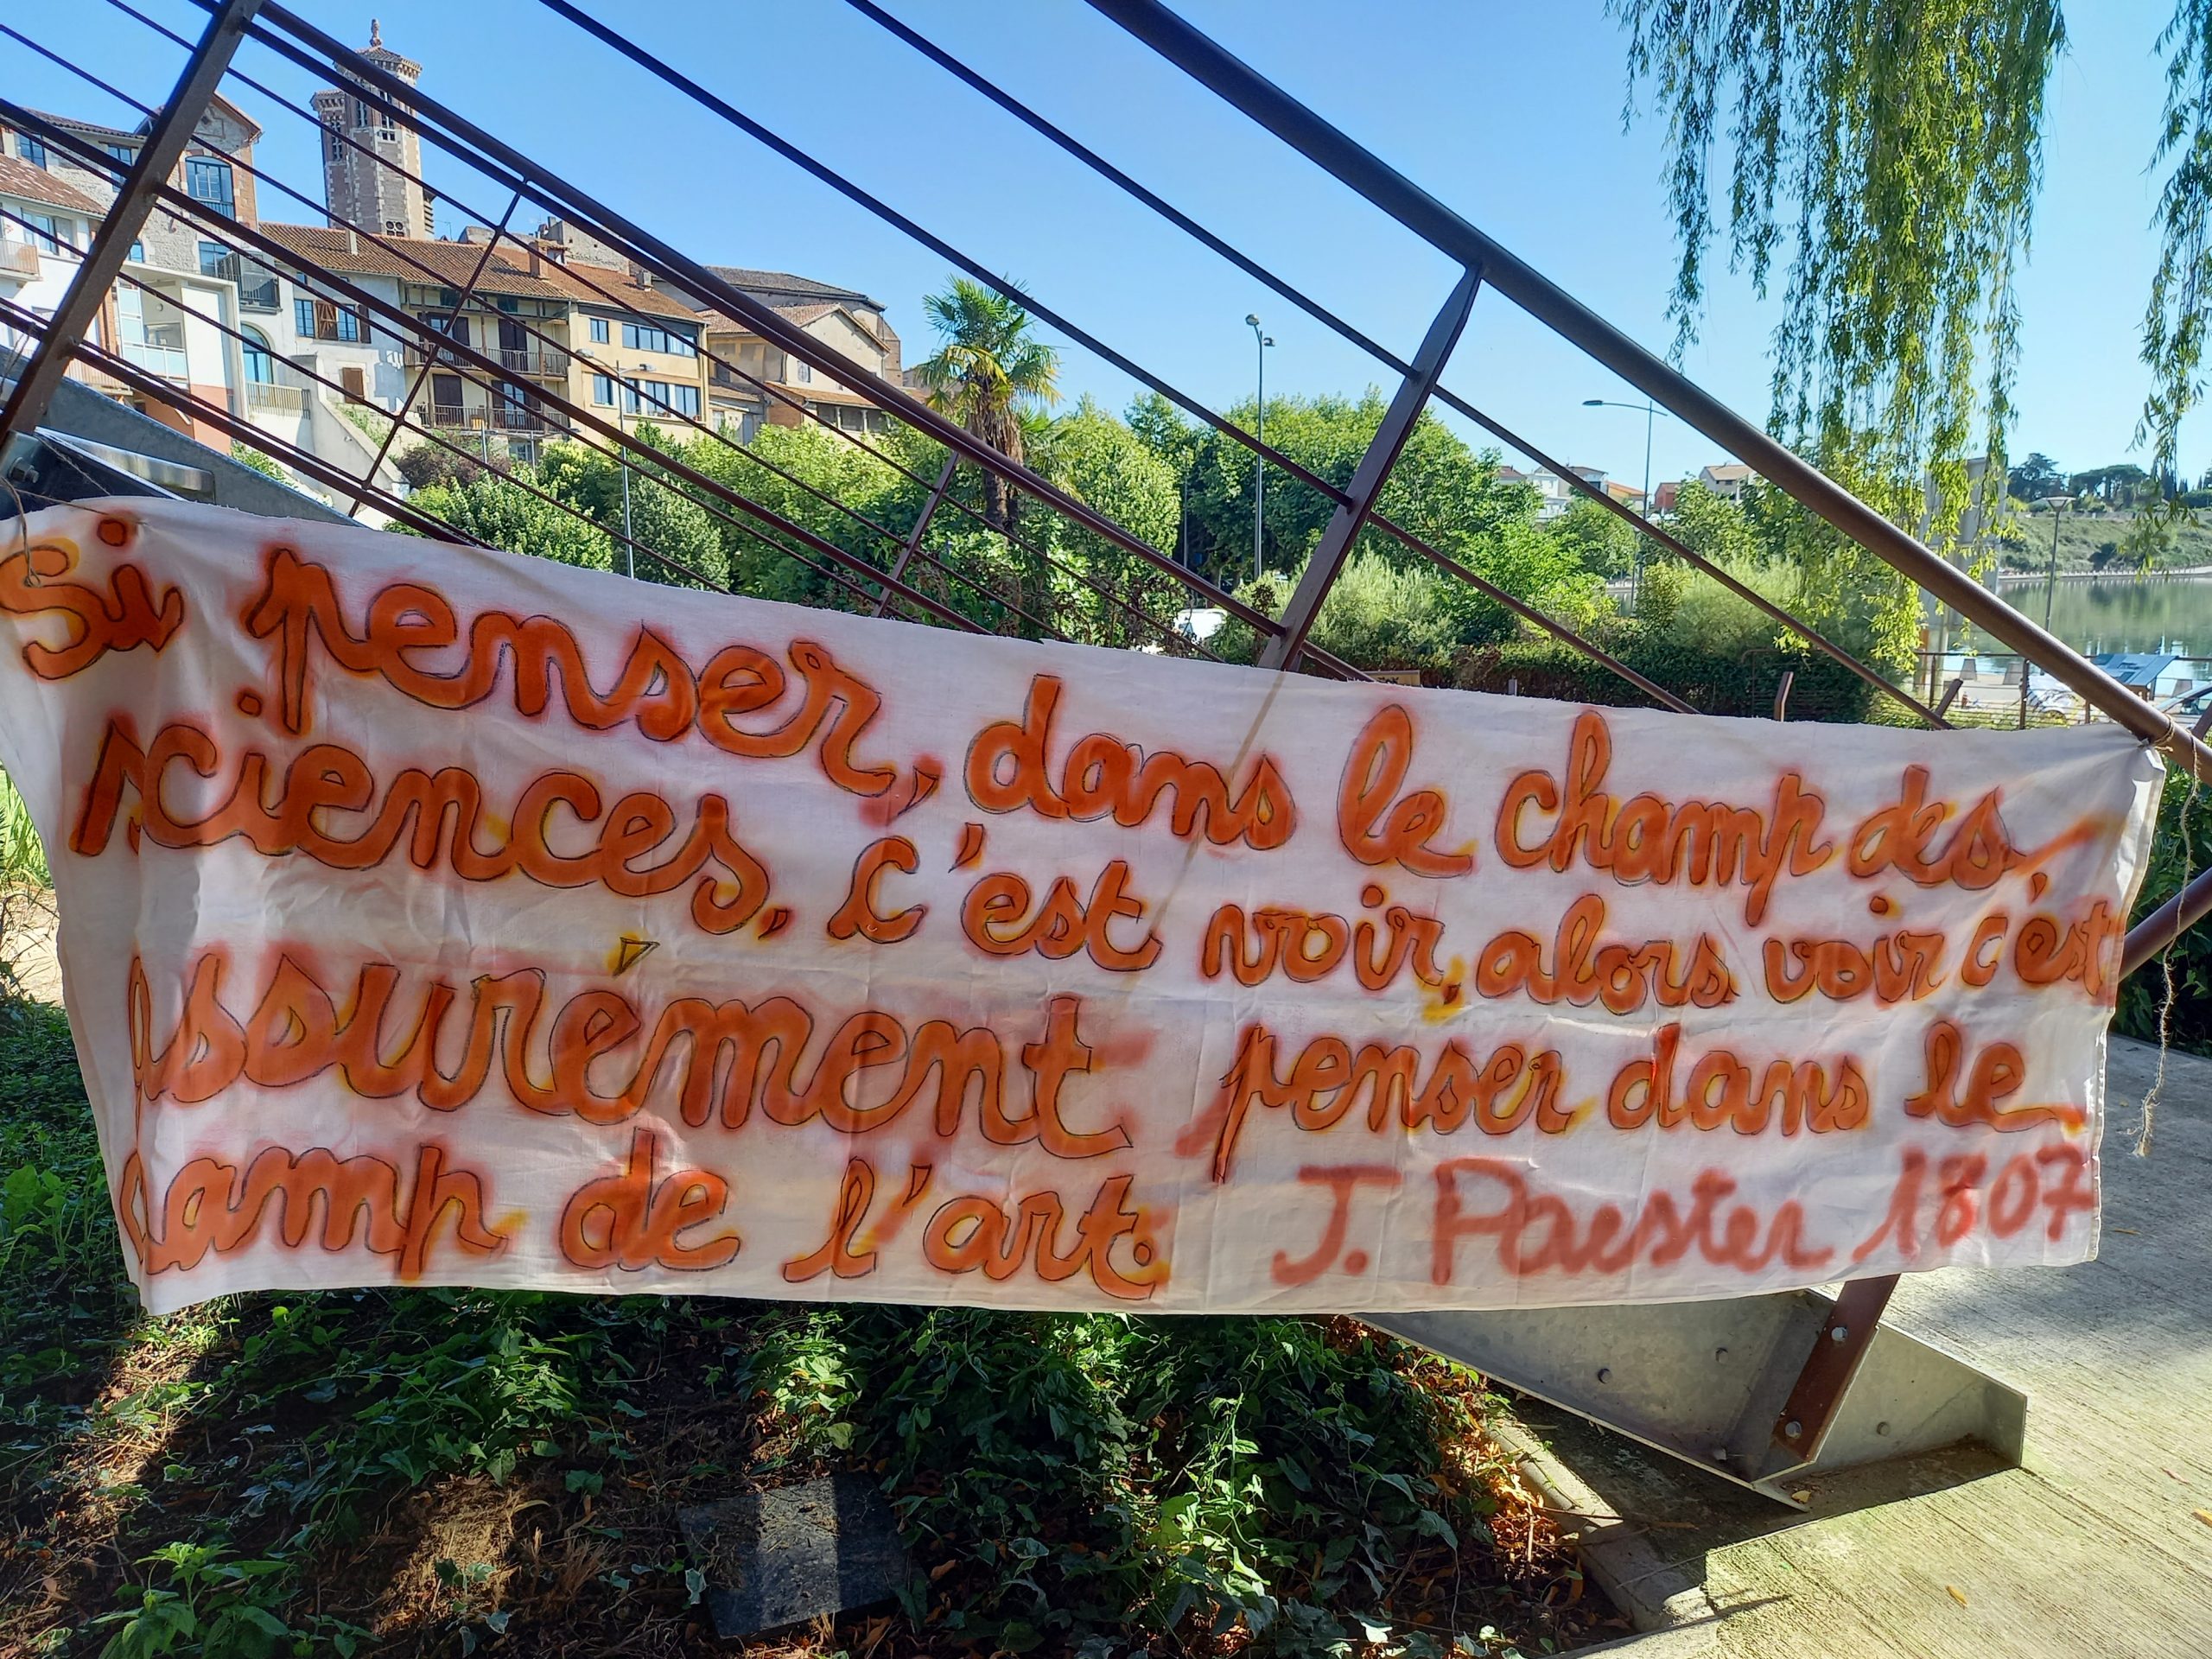 Si penser, dans le champ des
sciences, c'est voir, alors voir c'est
assurément penser dans le
camp de l'art. J. Paester 1807